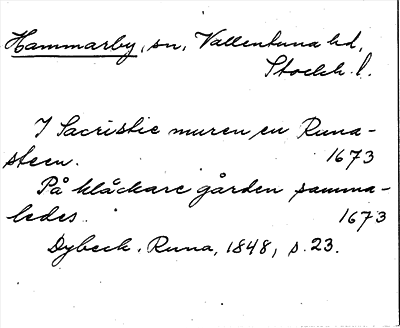 Hammarby, sn, Vallentuna hd,
Stockh. l.
I Sacristie muren en Runa-
steen. 1673
På klåckare gården samma-
ledes. 1673
Dybeck. Runa, 1848, s. 23.